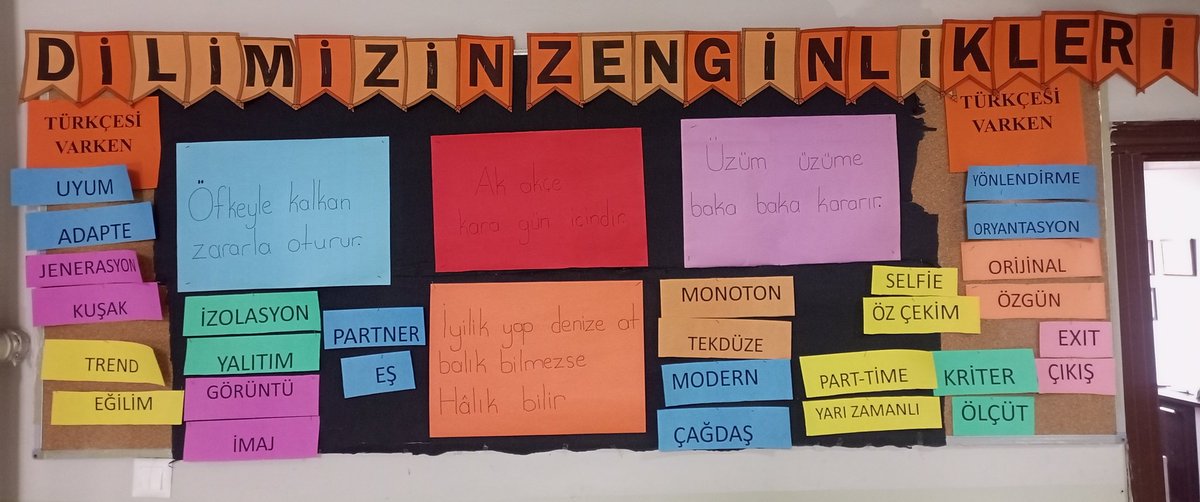 DİLİMİZİN ZENGİNLİKLERİ
TÜRKÇESİ
VARKEN
UYUM
ADAPTE
JENERASYON
KUŞAK
TREND
EĞİLİM
Öfkeyle kalkan
zararla oturur.
İZOLASYON
YALITIM
GÖRÜNTÜ
İMAJ
PARTNER
EŞ
Ak akçe
kara gün içindir.
İyilik yap denize at
balık bilmezse
Hâlık bilir
Üzüm üzüme
baka baka kararır.
MONOTON
TEKDÜZE
MODERN
ÇAĞDAŞ
SELFİE
ÖZ ÇEKİM
PART-TİME
YARI ZAMANLI
TÜRKÇESİ
VARKEN
YÖNLENDİRME
ORYANTASYON
ORİJİNAL
ÖZGÜN
EXIT
ÇIKIŞ
KRİTER
ÖLÇÜT